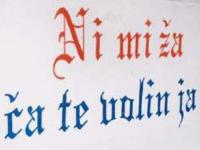 Ni mi ža
ča te volin ja